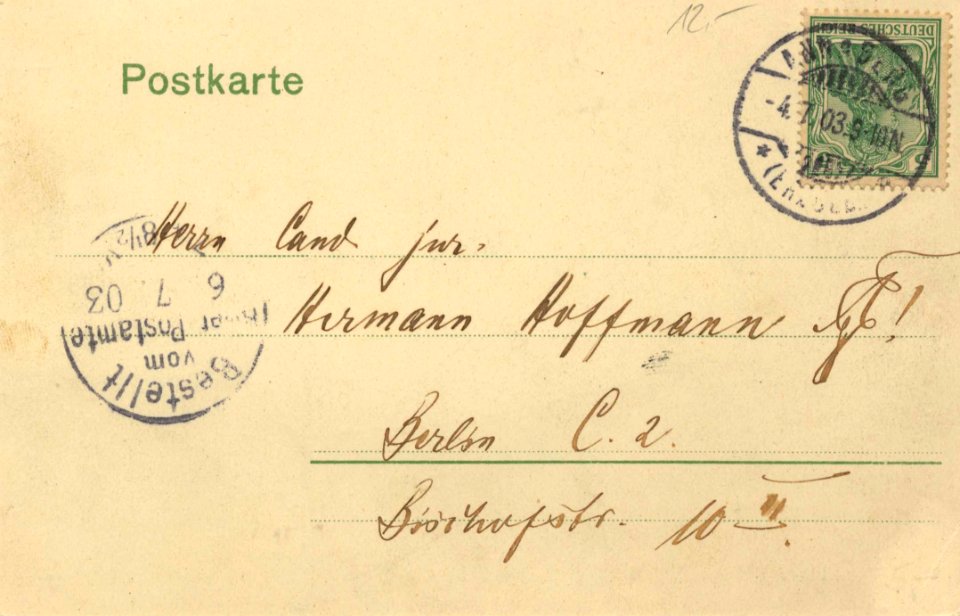 12.-
Postkarte
DEUTSCHES REICH
5
ANNABERG
-4.7.03.9-10N.
* (ERZGEB.
Herrn Cand jur.
Hermann Hoffmann
Berlin C. 2.
Bischofstr. 10 II.
Bestellt
vom
Postamte
6 7 03
8½